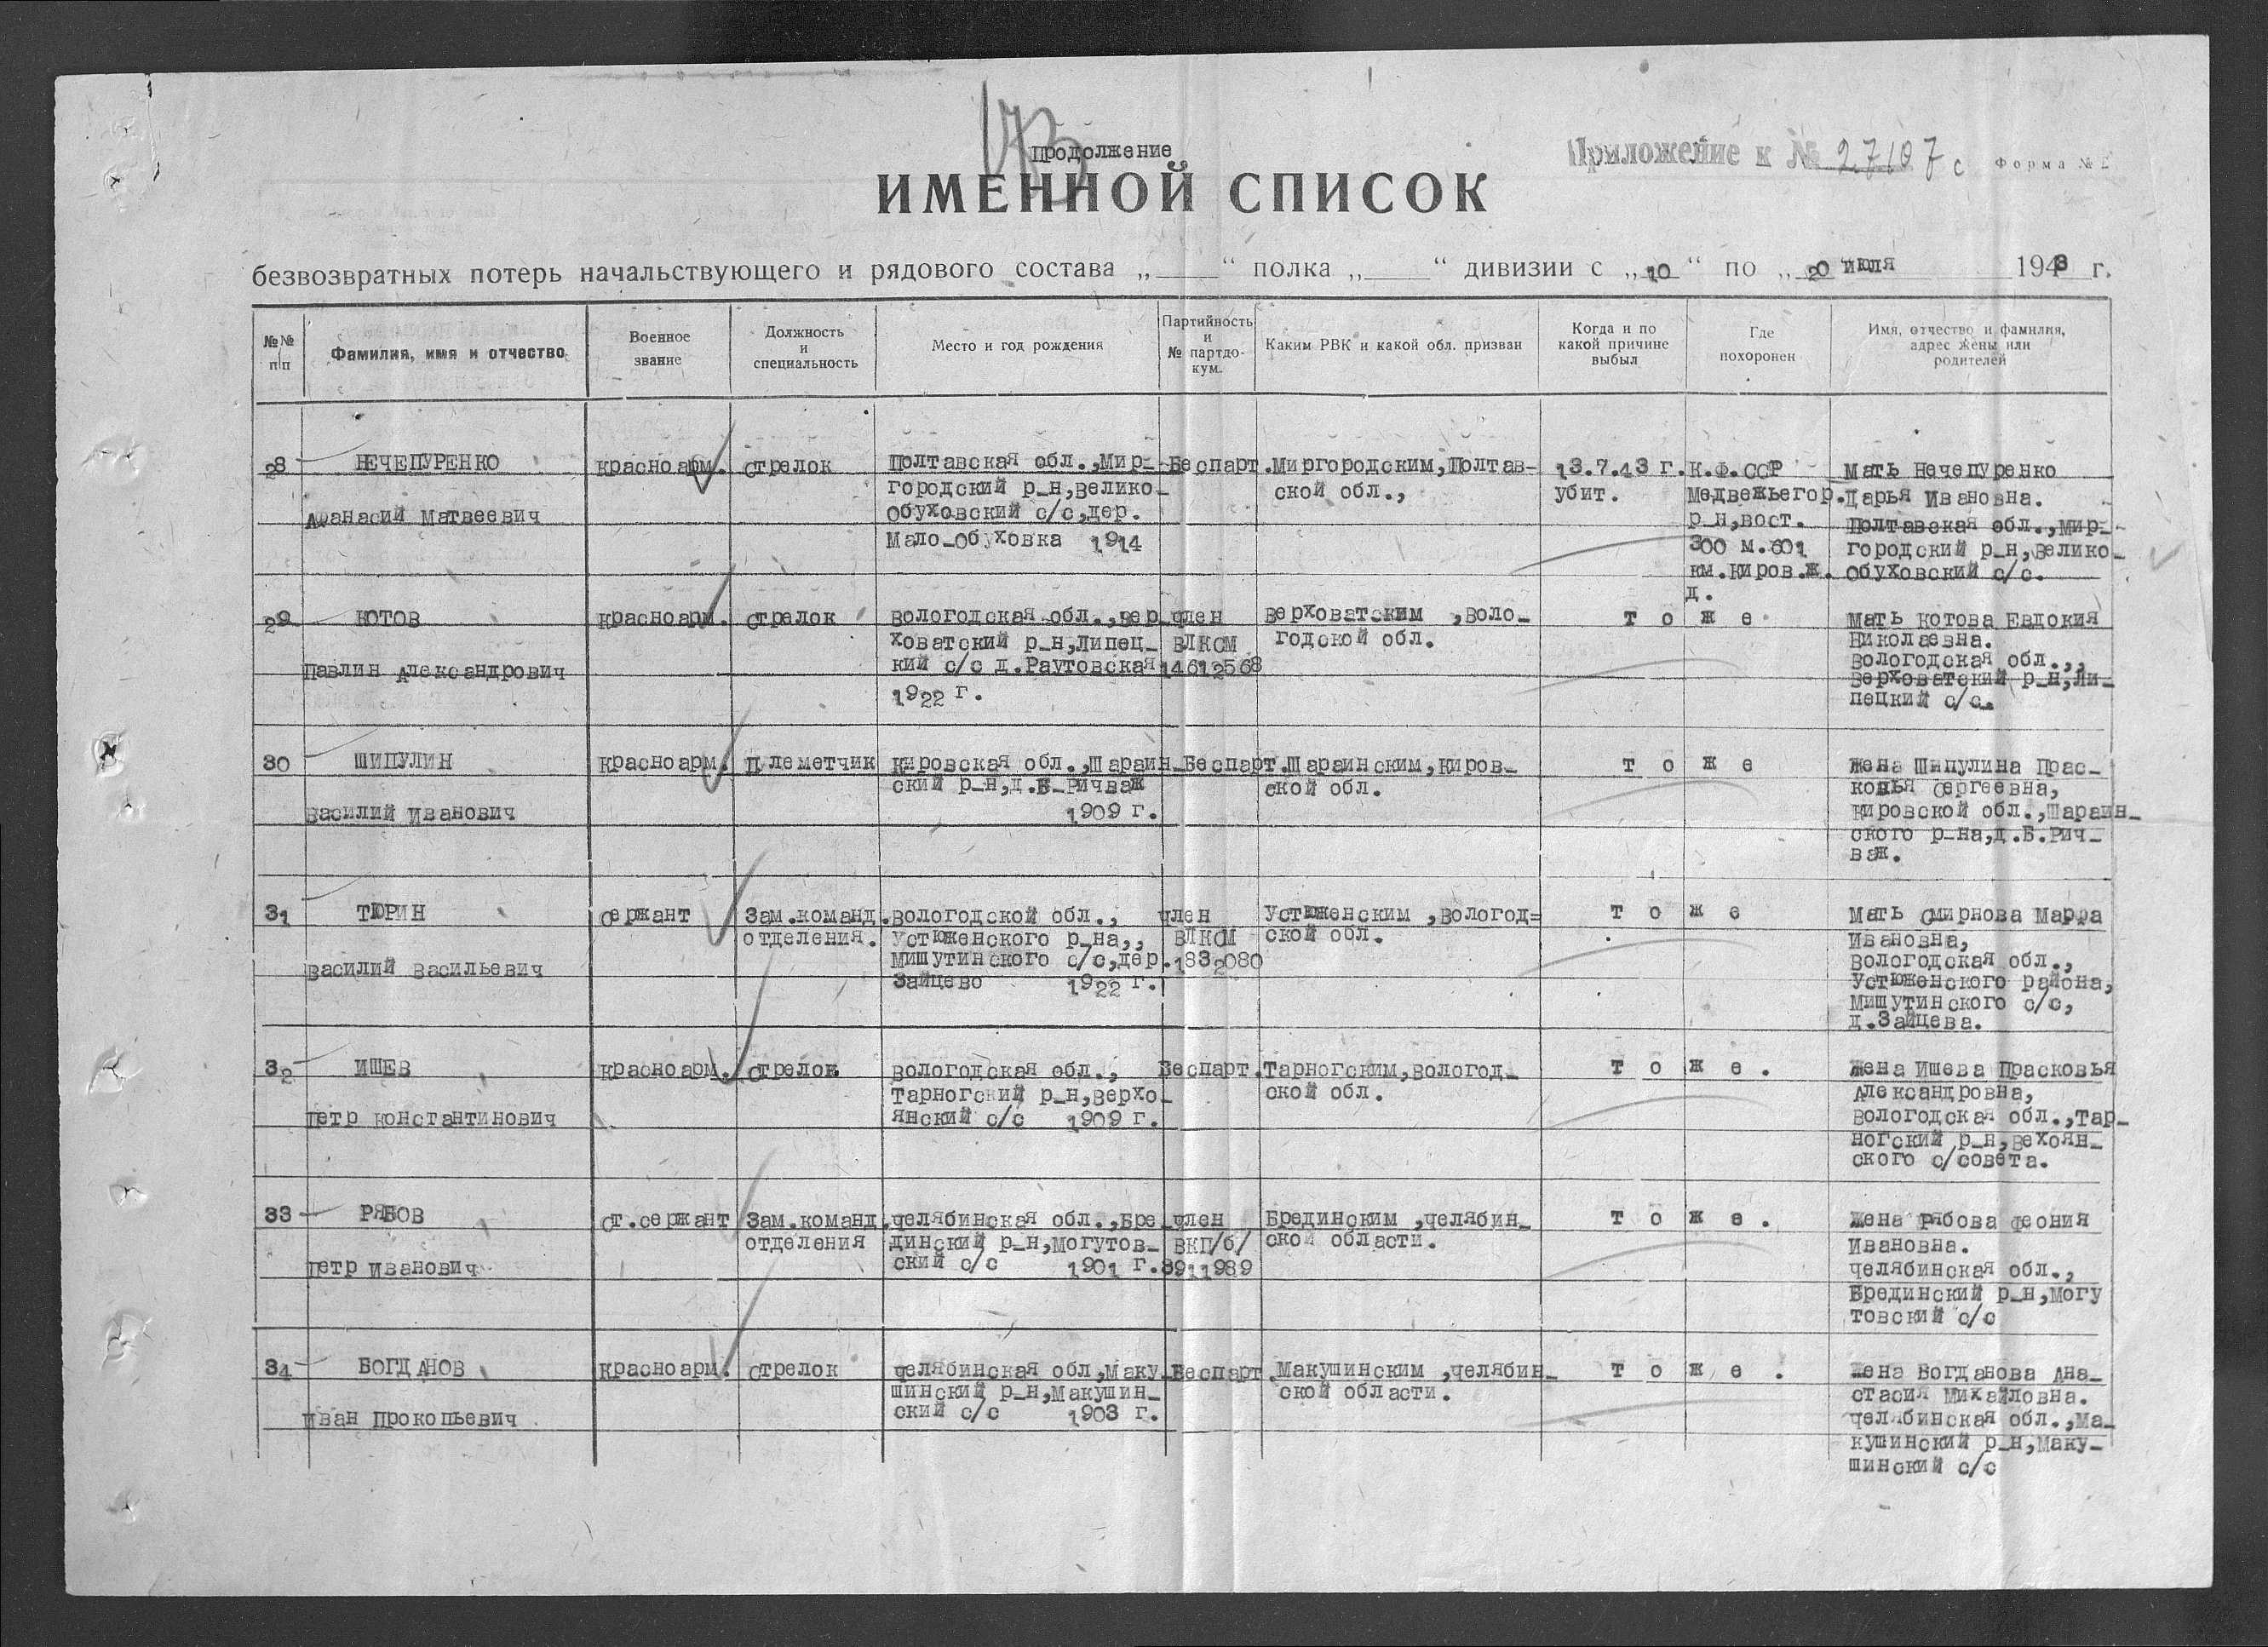 Продолжение
Приложение к № 27107 с Форма №
ИМЕННОЙ СПИСОК
безвозвратных потерь начальствующего и рядового состава „ “ полка „ “ дивизии с „10“ по „20 июля 1943 г.
№№ п/п
Фамилия, имя и отчество
Военное звание
Должность и специальность
Место и год рождения
Партийность и № партдокум.
Каким РВК и какой обл. призван
Когда и по какой причине выбыл
Где похоронен
Имя, отчество и фамилия, адрес жены или родителей
28
НЕЧЕПУРЕНКО
Афанасий Матвеевич
Красноарм.
Стрелок
Полтавская обл.,Мир-
городский р-н,Велико-
Обуховский с/с,дер.
Мало-Обуховка 1914
Беспарт.
Миргородским,Полтав-
ской обл.,
13.7.43 г.
убит.
К.Ф.ССР
Медвежьегор.
р-н,вост.
300 м.601
км.Киров.ж.
д.
Мать Нечепуренко
Дарья Ивановна.
Полтавская обл.,Мир-
городский р-н,Велико-
Обуховский с/с.
29
КОТОВ
Павлин Александрович
Красноарм.
Стрелок
Вологодская обл.,Вер-
ховатский р-н,Липец-
кий с/с д.Раутовская
1922 г.
член
ВЛКСМ
14612568
Верховатским ,Воло-
годской обл.
т о ж е
Мать Котова Евдокия
Николаевна.
Вологодская обл.,,
Верховатский р-н,Ли-
пецкий с/с.
30
ШИПУЛИН
Василий Иванович
Красноарм.
П леметчик
Кировская обл.,Шараин-
ский р-н,д.Б-Ричваж
1909 г.
Беспарт.
Шараинским,Киров-
ской обл.
т о ж е
Жена Шипулина Прас-
ковья Сергеевна,
Кировской обл.,Шараин-
ского р-на,д.Б.Рич-
важ.
31
ТЮРИН
Василий Васильевич
Сержант
Зам.команд.
отделения.
Вологодской обл.,
Устюженского р-на,,
Мишутинского с/с,дер.
Зайцево 1922 г.
член
ВЛКСМ
1832080
Устюженским ,Вологод=
ской обл.
т о ж е
Мать Смирнова Марфа
Ивановна,
Вологодская обл.,
Устюженского района,
Мишутинского с/с,
д.Зайцева.
32
ИШЕВ
Петр Константинович
Красноарм.
Стрелок
Вологодская обл.,
Тарногский р-н,Верхо-
янский с/с 1909 г.
Беспарт.
Тарногским,Вологод-
ской обл.
т о ж е .
Жена Ишева Прасковья
Александровна,
Вологодская обл.,Тар-
ногский р-н,Вехоян-
ского с/совета.
33
РЯБОВ
Петр Иванович
Ст.сержант
Зам.команд.
отделения
Челябинская обл.,Бре-
динский р-н,Могутов-
ский с/с 1901 г.
член
ВКП/б/
3911989
Брединским ,Челябин-
ской области.
т о ж е .
Жена Рябова Феония
Ивановна.
Челябинская обл.,
Брединский р-н,Могу
товский с/с
34
БОГДАНОВ
Иван Прокопьевич
Красноарм.
Стрелок
Челябинская обл,Маку-
шинский р-н,Макушин-
ский с/с 1903 г.
Беспарт.
Макушинским ,Челябин-
ской области.
т о ж е .
Жена Богданова Ана-
стасия Михайловна.
Челябинская обл.,Ма-
кушинский р-н,Маку-
шинский с/с